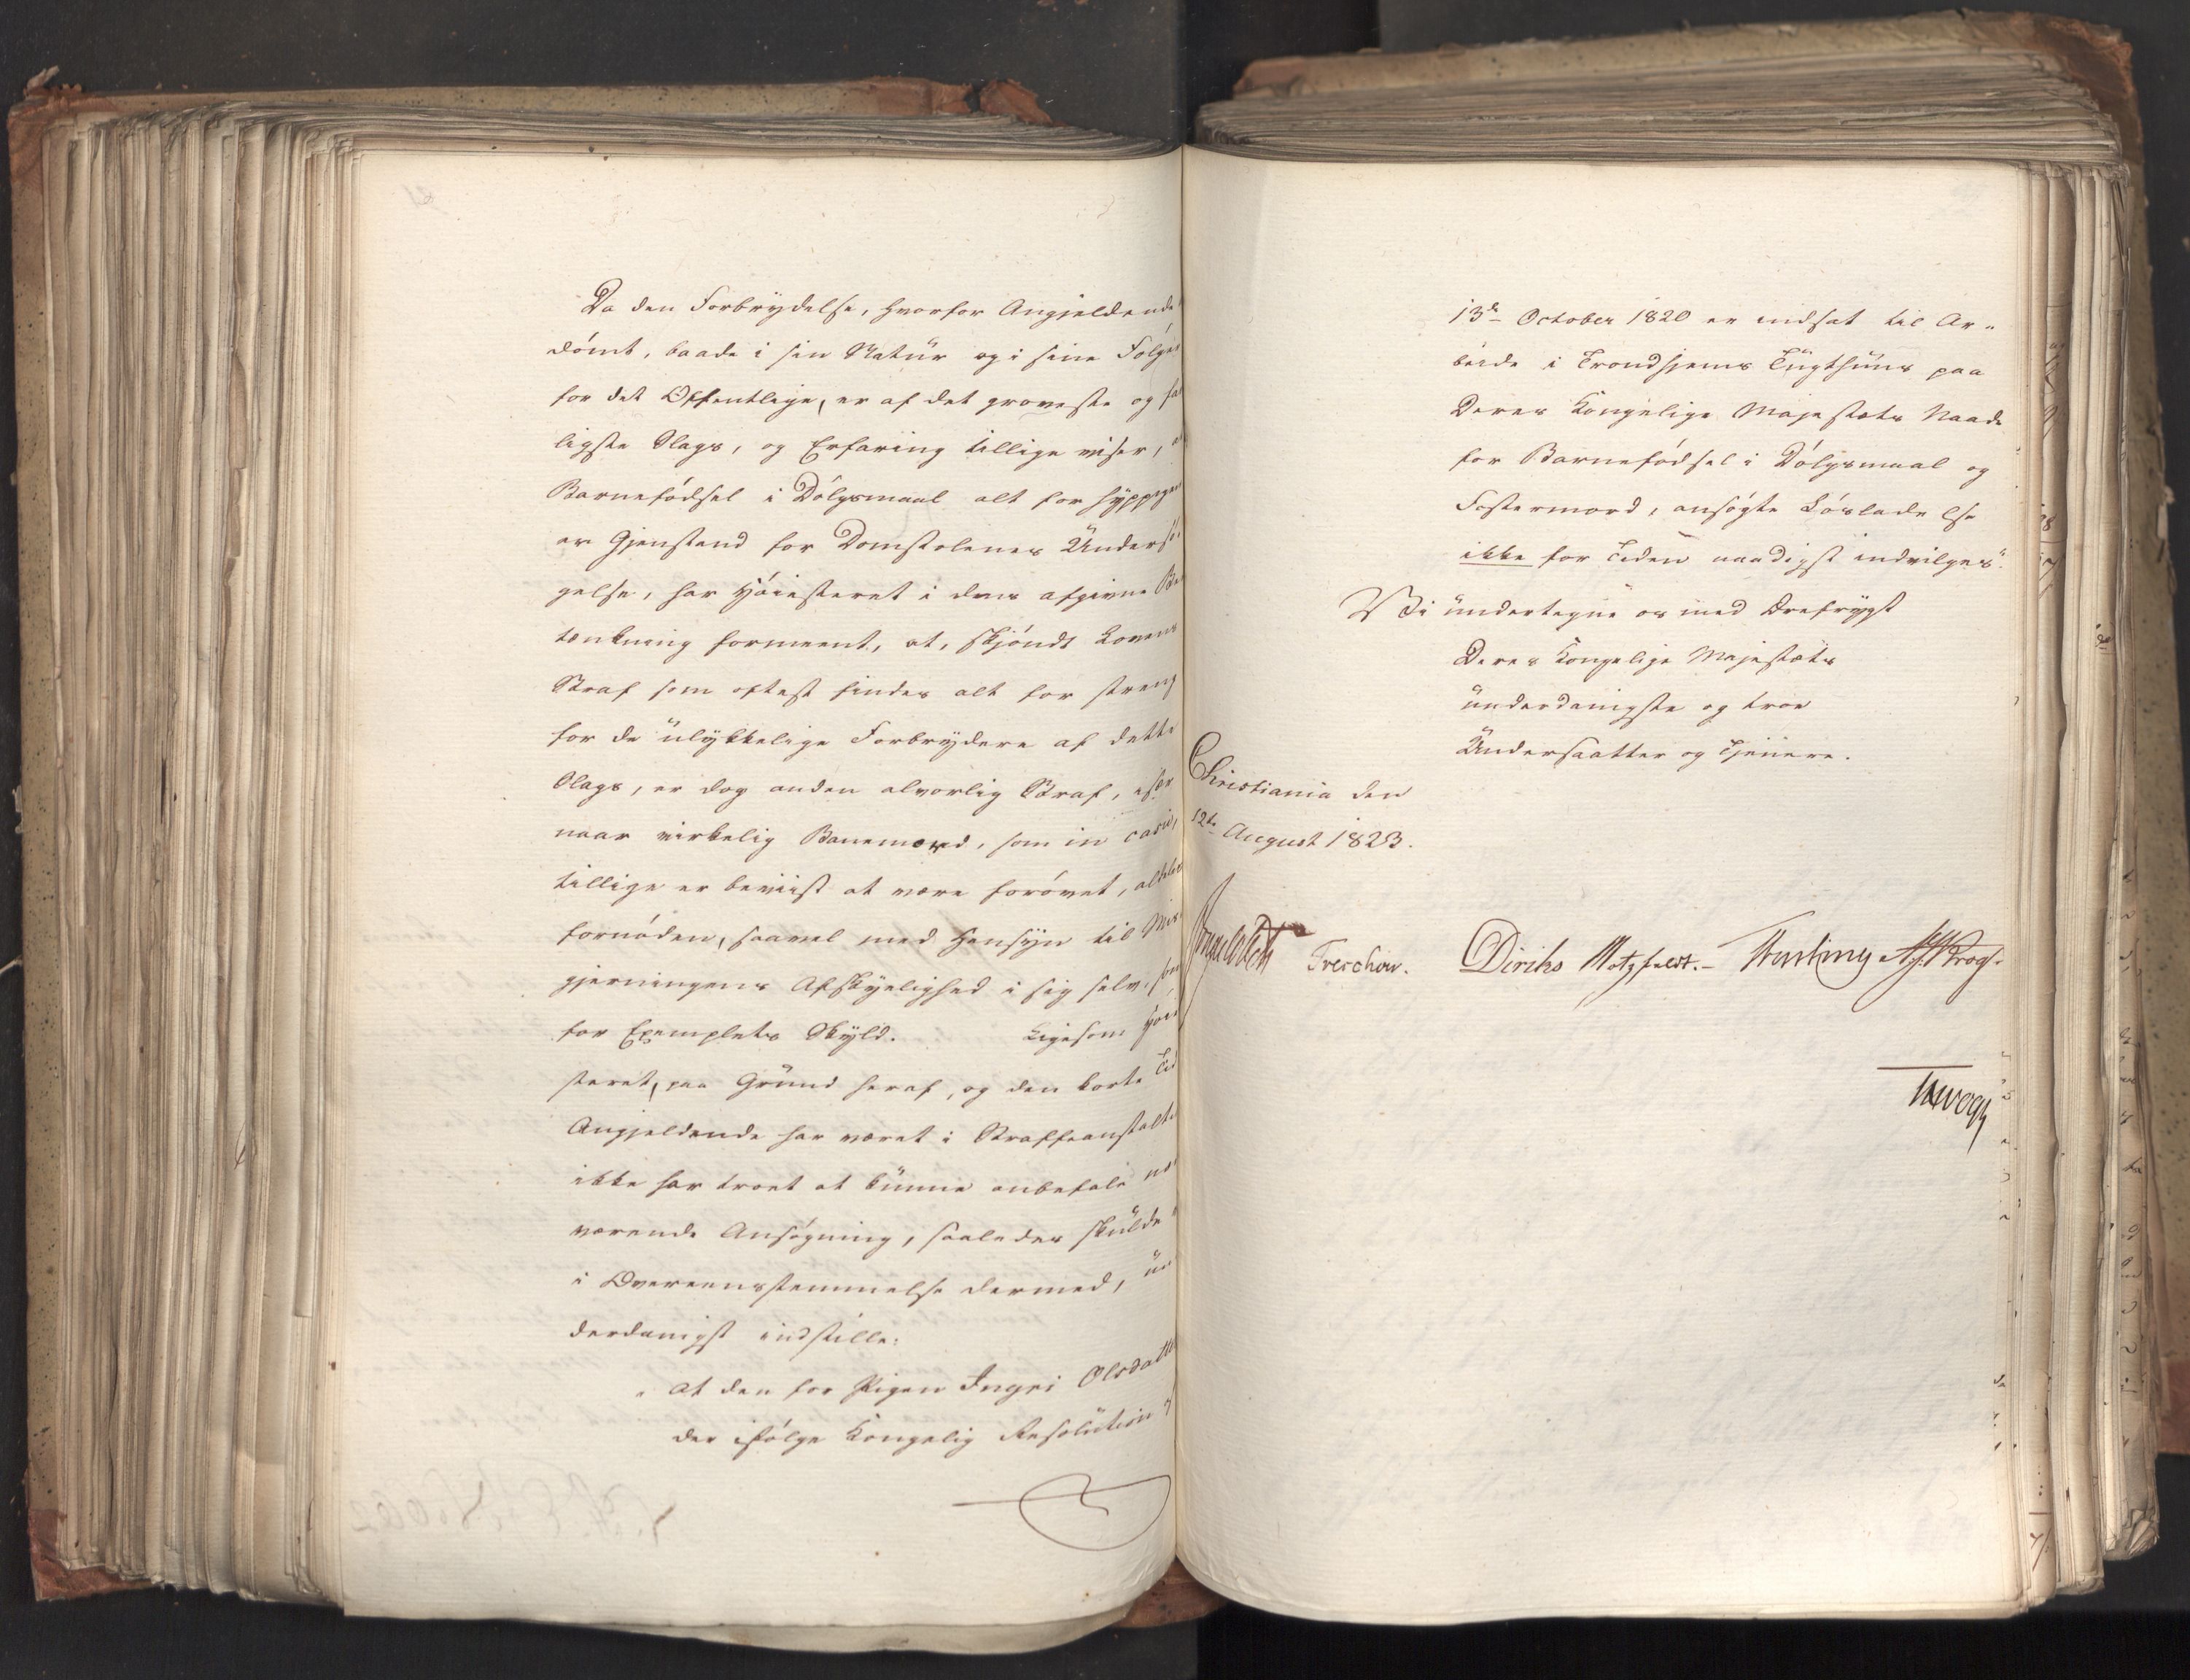 Da den Forbrydelse, hvorfor Angjeldende
dømt, baade i sin Natur og i sine Følger
for det Offentlige, er af det groveste og far
ligste Slags, og Erfaring tillige viser, at
Barnefødsel i Dølgsmaal alt for hyppigen
er Gjenstand for Domstolenes Undersø-
gelse, har Høiesteret i dens afgivne Be
tænkning formeent, at, skjøndt Lovens
Straf som oftest findes alt for streng
for de ulykkelige Forbrydere af dette
Slags, er dog anden alvorlig Straf, især
naar virkelig Barnemord, som in casu,
tillige er beviist at være forøvet, aldeles
fornøden, saavel med Hensyn til Mis-
gjerningens Afskyelighed i sig selv, som
for Exemplets Skyld. Ligesom Høie
steret, paa Grund heraf, og den korte Tid
Angjeldende har været i Straffeanstalten
ikke har troet at kunne anbefale nær
værende Ansøgning, saaledes skulde
i Overeensstemmelse dermed, un
derdanigst indstille:
"At den for Pigen Ingri Olsdatter
der ifølge Kongelig Resolution af
13de October 1820 er indsat til Ar-
beide i Trondhjems Tugthuus paa
Deres Kongelige Majestæts Naade
for Barnefødsel i Dølgsmaal og
Fostermord, ansøgte Løsladelse
ikke for Tiden naadigst indvilges".
Vi undertegne os med Ærefrygt
Deres Kongelige Majestæts
underdanigste og troe
Undersaatter og Tjenere.
Christiania den
12te August 1823.
Treschow. Diriks Motzfeldt.- Krog.